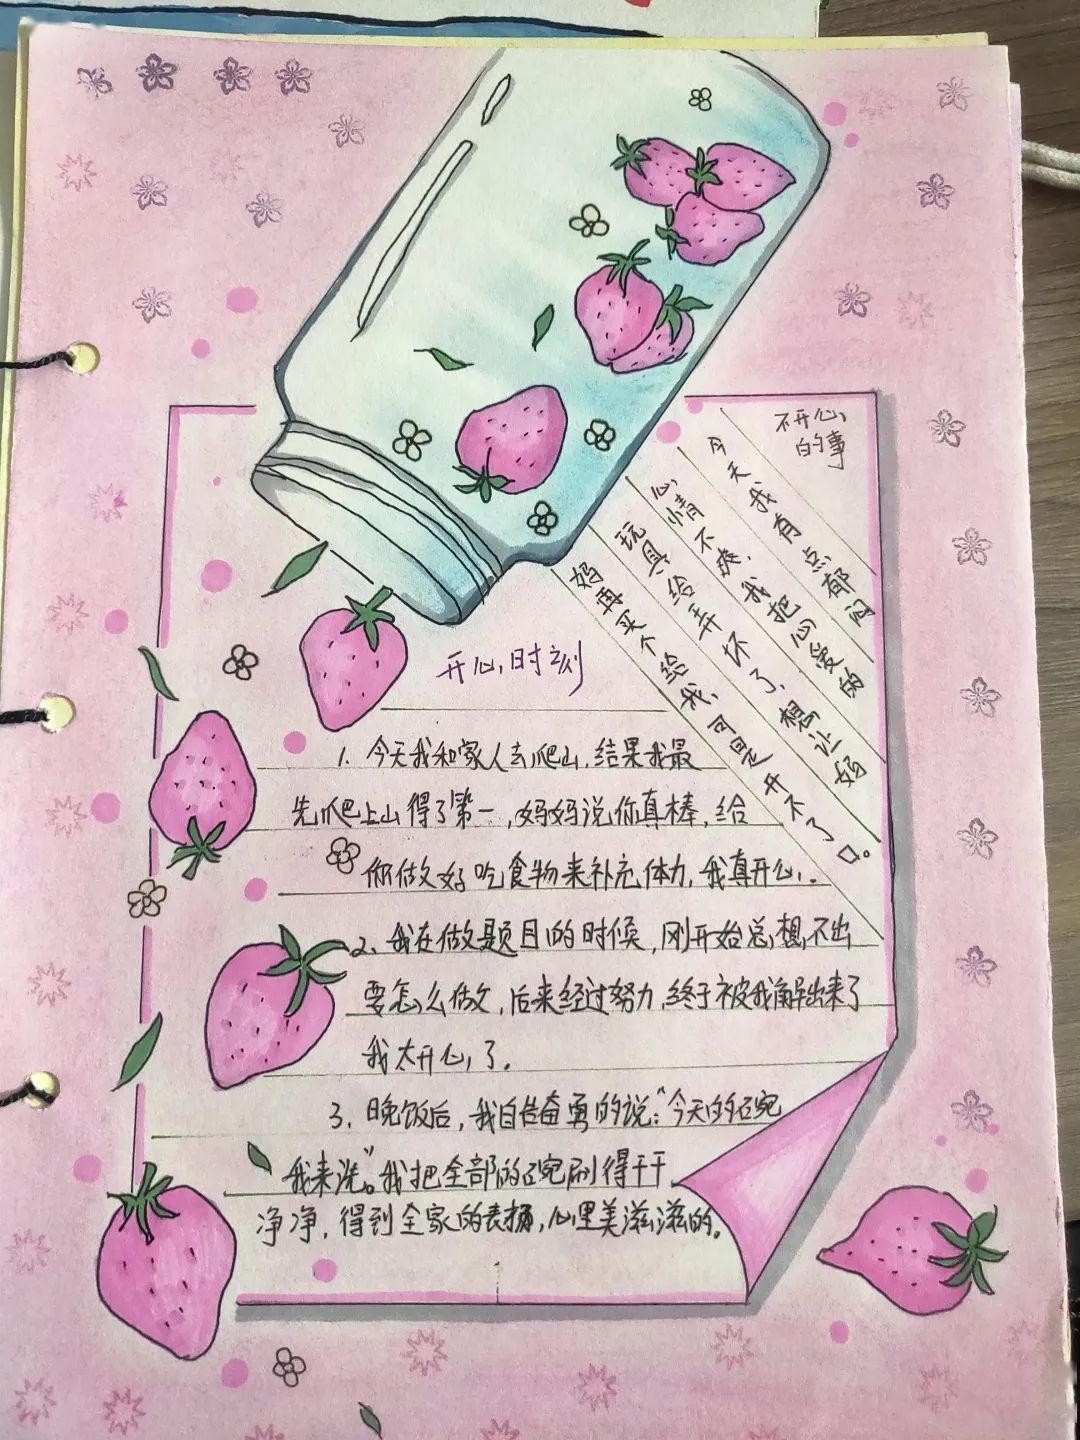 不开心
的事
今天我有点郁闷
心情不爽，我把心爱的
玩具给弄坏了，想让妈
妈再买个给我，可是开不了口。
开心时刻
1. 今天我和家人去爬山，结果我最
先爬上山得了第一，妈妈说你真棒，给
你做好吃食物来补充体力，我真开心。
2、我在做题目的时候，刚开始总想不出
要怎么做，后来经过努力，终于被我解出来了
我太开心了。
3、晚饭后，我自告奋勇的说：“今天的碗
我来洗”。我把全部的碗刷得干干
净净，得到全家的表扬，心里美滋滋的。